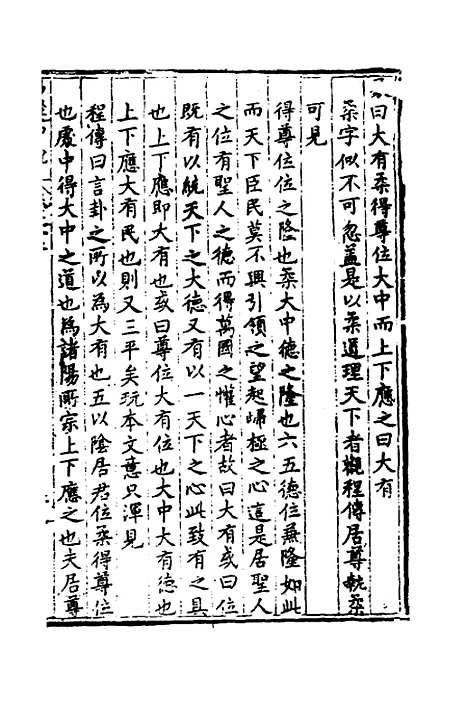 曰大有柔得尊位大中而上下應之曰大有
柔字似不可忽蓋是以柔道理天下者觀程傳居尊執柔
可見
得尊位位之隆也柔大中德之隆也六五德位兼隆如此
而天下臣民莫不興引領之望起歸極之心這是居聖人
之位有聖人之德而得萬國之懽心者故曰大有或曰位
既有以統天下之大德又有以一天下之心此致有之具
也上下應即大有也或曰尊位大有位也大中大有德也
上下應大有民也則又三平矣玩本文意只渾見
程傳曰言卦之所以為大有也五以陰居君位柔得尊位
也處中得大中之道也為諸陽所宗上下應之也夫居尊